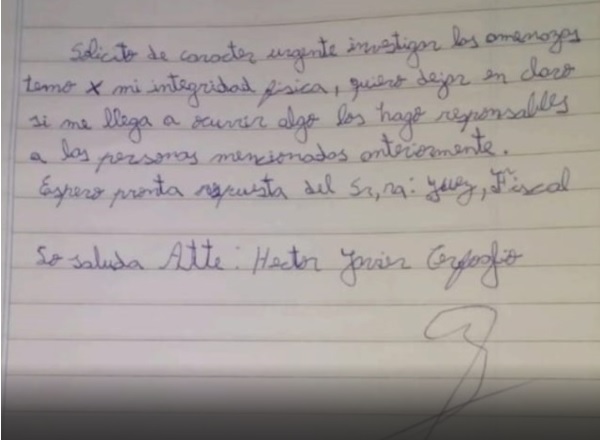 Solicito de caracter urgente investigar las amenazas
temo x mi integridad física, quiero dejar en claro
si me llega a ocurrir algo los hago responsables
a las personas mencionadas anteriormente.
Espero pronta repuesta del Sr, ra: Juez, Fiscal
Lo saluda Atte: Hector Javier